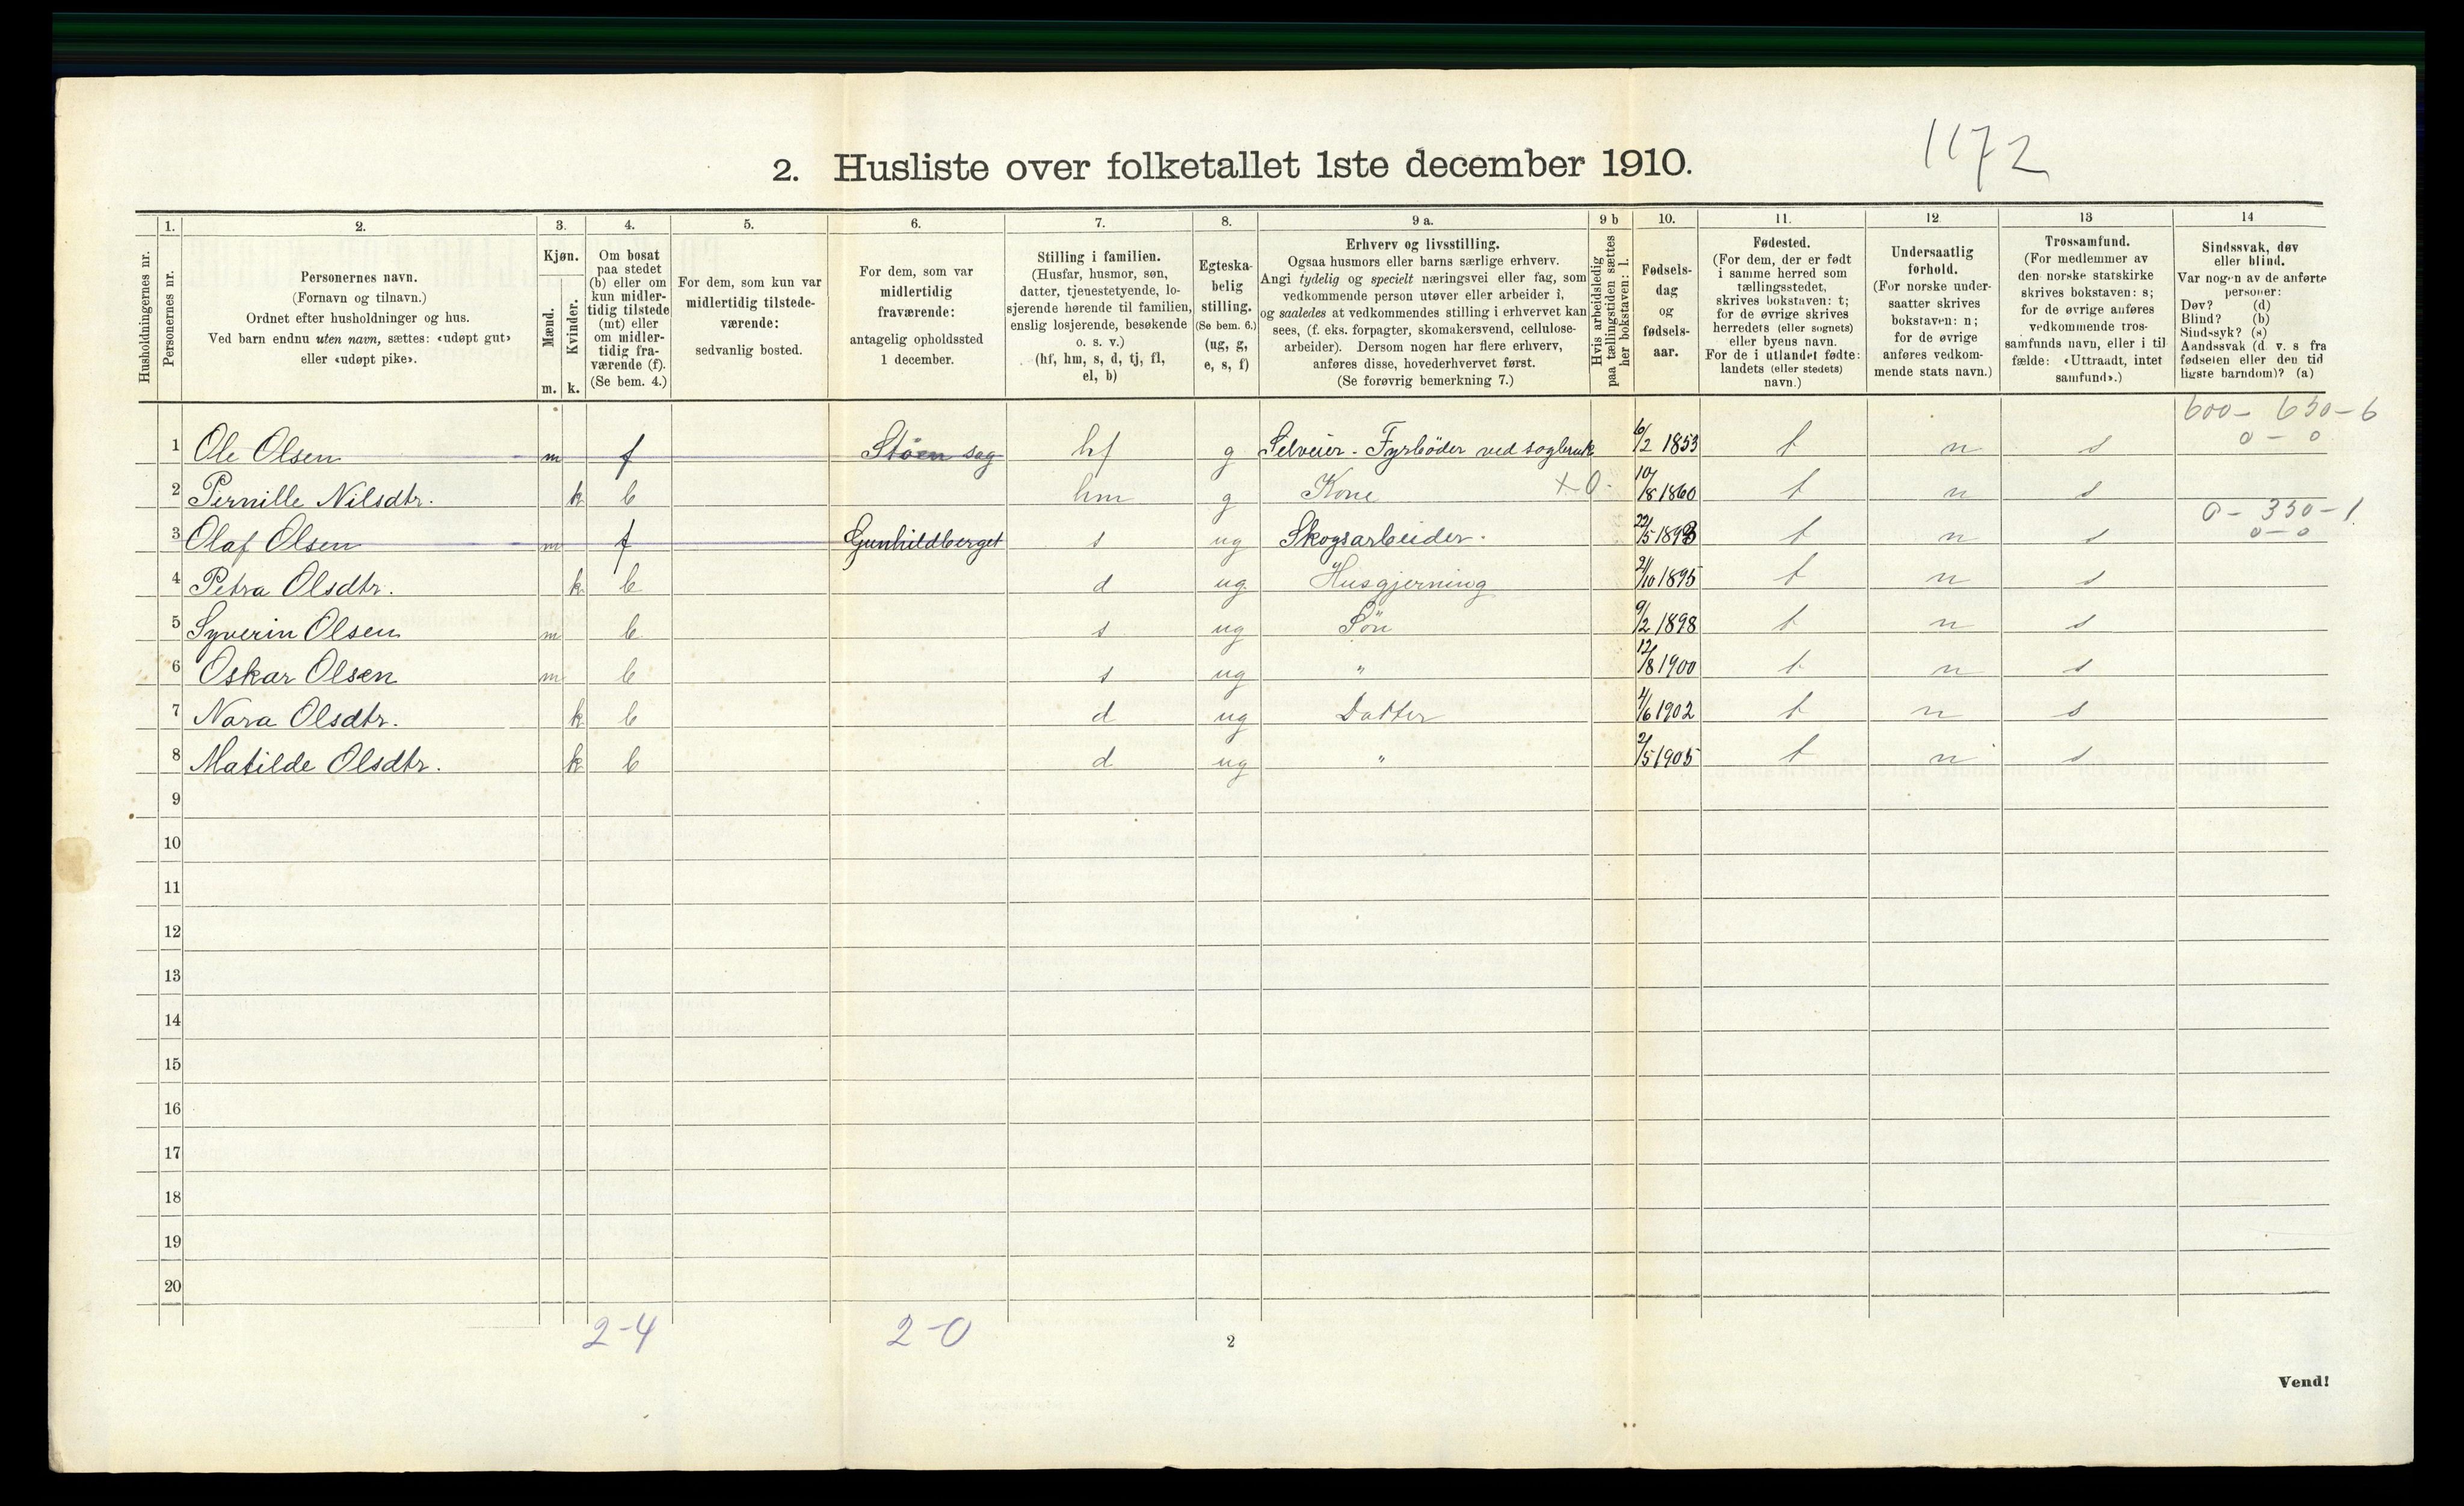 1172
2. Husliste over folketallet 1ste december 1910.
1. 2. 3. 4. 5. 6. 7. 8. 9 a. 9 b 10. 11. 12. 13 14
Husholdningernes nr.
Personernes nr.
Personernes navn.
(Fornavn og tilnavn.)
Ordnet efter husholdninger og hus.
Ved barn endnu uten navn, sættes: «udøpt gut»
eller «udøpt pike».
Kjøn.
Mænd.
Kvinder.
m. k.
Om bosat
paa stedet
(b) eller om
kun midler-
tidig tilstede
(mt) eller
om midler-
tidig fra-
værende (f).
(Se bem. 4.)
For dem, som kun var
midlertidig tilstede-
værende:
sedvanlig bosted.
For dem, som var
midlertidig
fraværende:
antagelig opholdssted
1 december.
Stilling i familien.
(Husfar, husmor, søn,
datter, tjenestetyende, lo-
sjerende hørende til familien,
enslig losjerende, besøkende
o. s. v.)
(hf, hm, s, d, tj, fl,
el, b)
Egteska-
belig
stilling.
(Se bem. 6.)
(ug, g,
e, s, f)
Erhverv og livsstilling.
Ogsaa husmors eller barns særlige erhverv.
Angi tydelig og specielt næringsvei eller fag, som
vedkommende person utøver eller arbeider i,
og saaledes at vedkommendes stilling i erhvervet kan
sees, (f. eks. forpagter, skomakersvend, cellulose-
arbeider). Dersom nogen har flere erhverv,
anføres disse, hovederhvervet først.
(Se forøvrig bemerkning 7.)
Hvis arbeidsledig
paa tællingstiden sættes
her bokstaven: l.
Fødsels-
dag
og
fødsels-
aar.
Fødested.
(For dem, der er født
i samme herred som
tællingsstedet,
skrives bokstaven: t;
for de øvrige skrives
herredets (eller sognets)
eller byens navn.
For de i utlandet fødte:
landets (eller stedets)
navn.)
Undersaatlig
forhold.
(For norske under-
saatter skrives
bokstaven: n;
for de øvrige
anføres vedkom-
mende stats navn.)
Trossamfund.
(For medlemmer av
den norske statskirke
skrives bokstaven: s;
for de øvrige anføres
vedkommende tros-
samfunds navn, eller i til-
fælde: «Uttraadt, intet
samfund».)
Sindssvak, døv
eller blind.
Var nogen av de anførte
personer:
Døv? (d)
Blind? (b)
Sindssyk? (s)
Aandssvak (d. v. s. fra
fødselen eller den tid-
ligste barndom)? (a)
600 - 650 - 6
0 - 0
1 Ole Olsen m f Støen sag hf g Selveier - Fyrbøder ved sagbruk 6/2 1853 t n s
2 Pernille Nilsdtr. k b hm g Kone + 0 - 10/8 1860 t n s
0 - 350 - 1
0 - 0
3 Olaf Olsen m f Gunhildberget s ug Skogsarbeider. 22/5 1893 t n s
4 Petra Olsdtr. k b d ug Husgjerning 21/10 1895 t n s
5 Syverin Olsen m b s ug Søn 9/2 1898 t n s
6 Oskar Olsen m b s ug " 12/8 1900 t n s
7 Nora Olsdtr. k b d ug Datter 4/6 1902 t n s
8 Matilde Olsdtr. k b d ug " 2/5 1905 t n s
9
10
11
12
13
14
15
16
17
18
19
20
2-4 2-0
2
Vend!